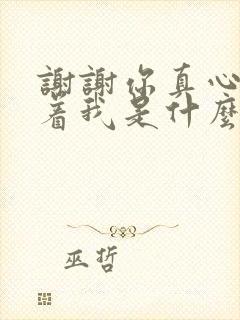 謝謝你真心
着我是什麼
巫哲